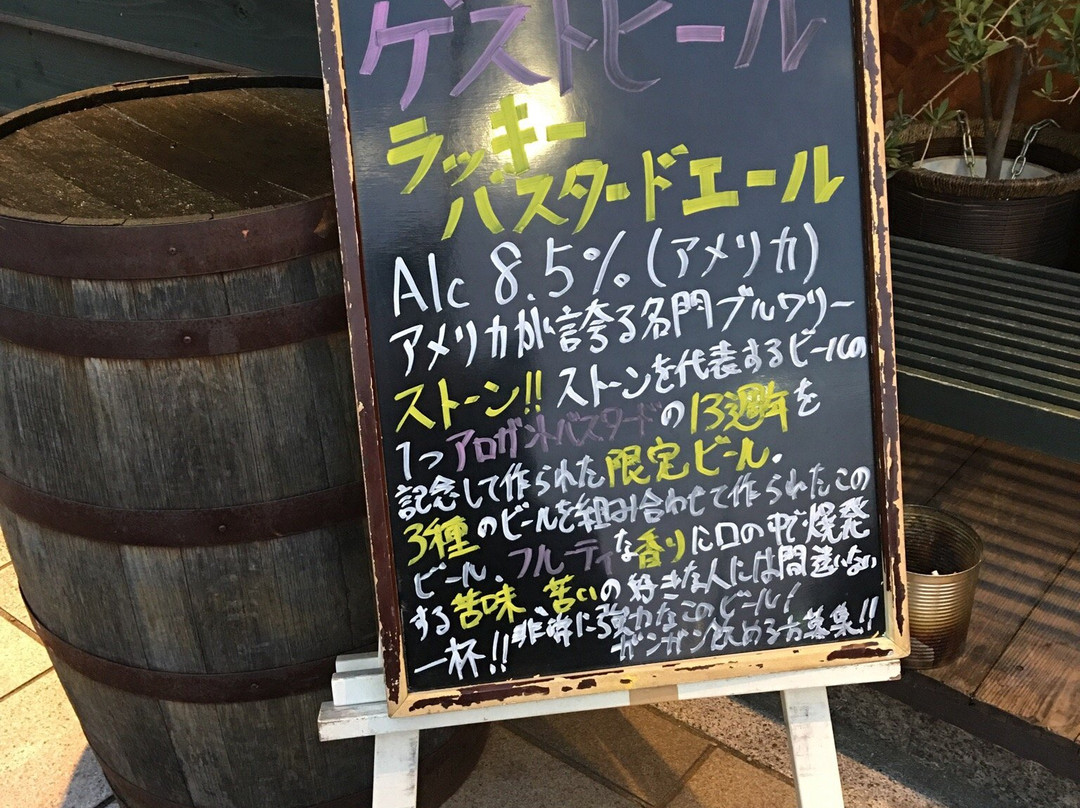 ゲストビール
ラッキー
バスタードエール
Alc 8.5% (アメリカ)
アメリカが誇る名門ブルワリー
ストーン!! ストーンを代表するビールの
1つアロガントバスタードの13週年を
記念して作られた限定ビール.
3種のビールを組み合わせて作られたこの
ビール.フルーティな香りに口の中で爆発
する苦味、苦いの好きな人には間違いない
一杯!! 非常に強力なこのビール!
ガンガン飲める方募集!!